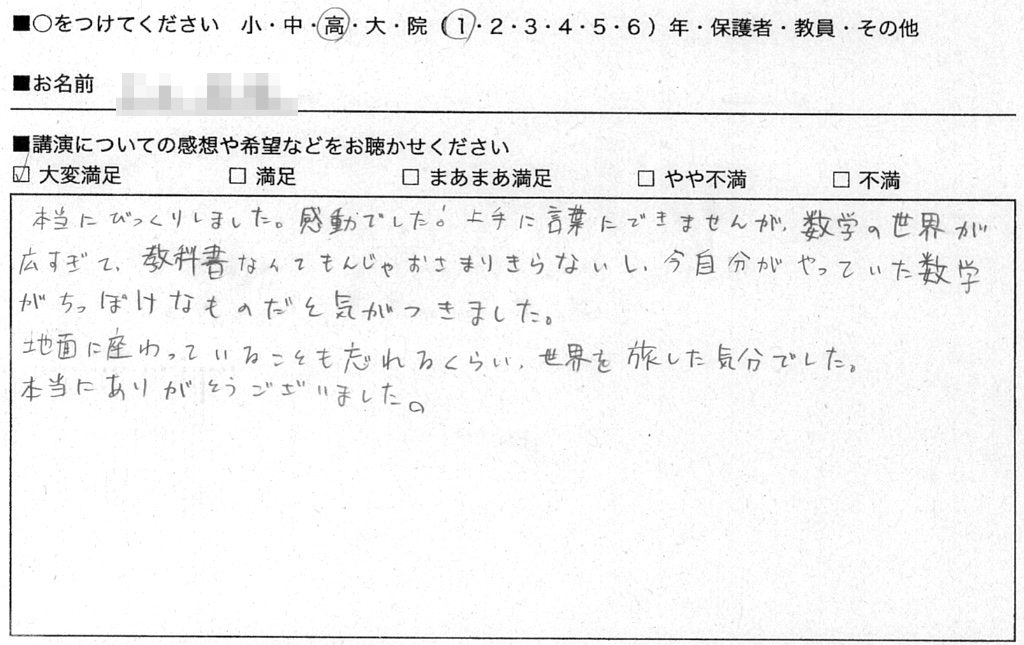 ■○をつけてください 小・中・高・大・院（1・2・3・4・5・6）年・保護者・教員・その他
■お名前
■講演についての感想や希望などをお聴かせください
☑ 大変満足 □ 満足 □ まあまあ満足 □ やや不満 □ 不満
本当にびっくりしました。感動でした! 上手に言葉にできませんが、数学の世界が
広すぎて、教科書なんてもんじゃおさまりきらないし、今自分がやっていた数学
がちっぽけなものだと気がつきました。
地面に座わっていることも忘れるくらい、世界を旅した気分でした。
本当にありがとうございました。